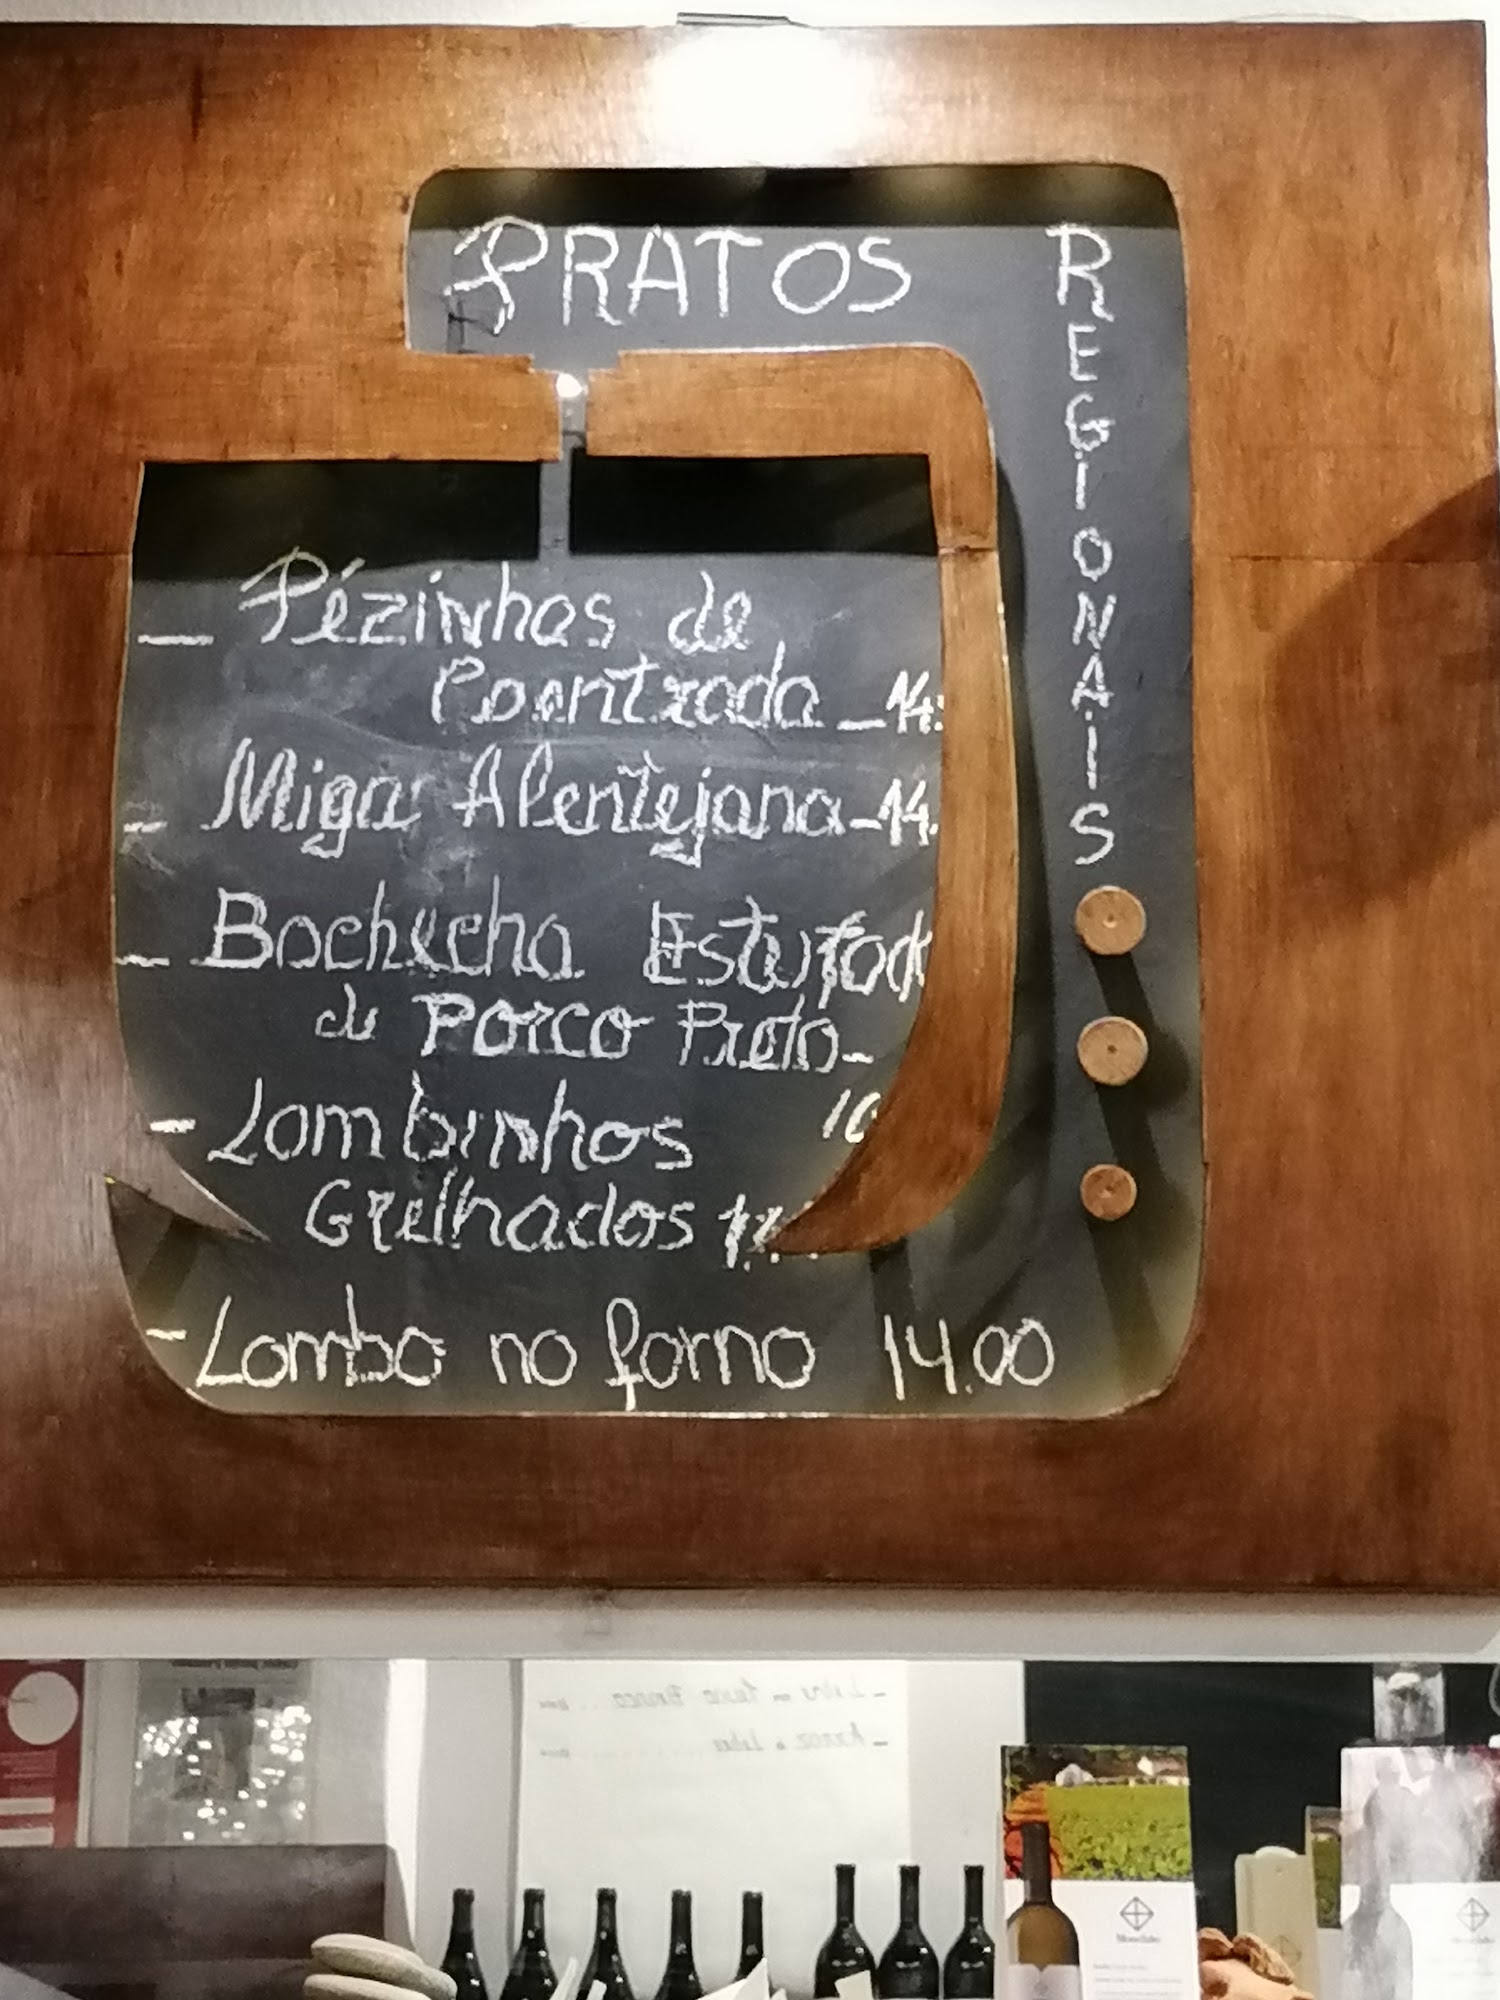 PRATOS
REGIONAIS
– Pézinhos de
Coentrada – 14.
– Miga Alentejana – 14.
– Bochecha Estufad
de Porco Preto –
10
– Lombinhos
Grelhados
– Lombo no forno 14.00